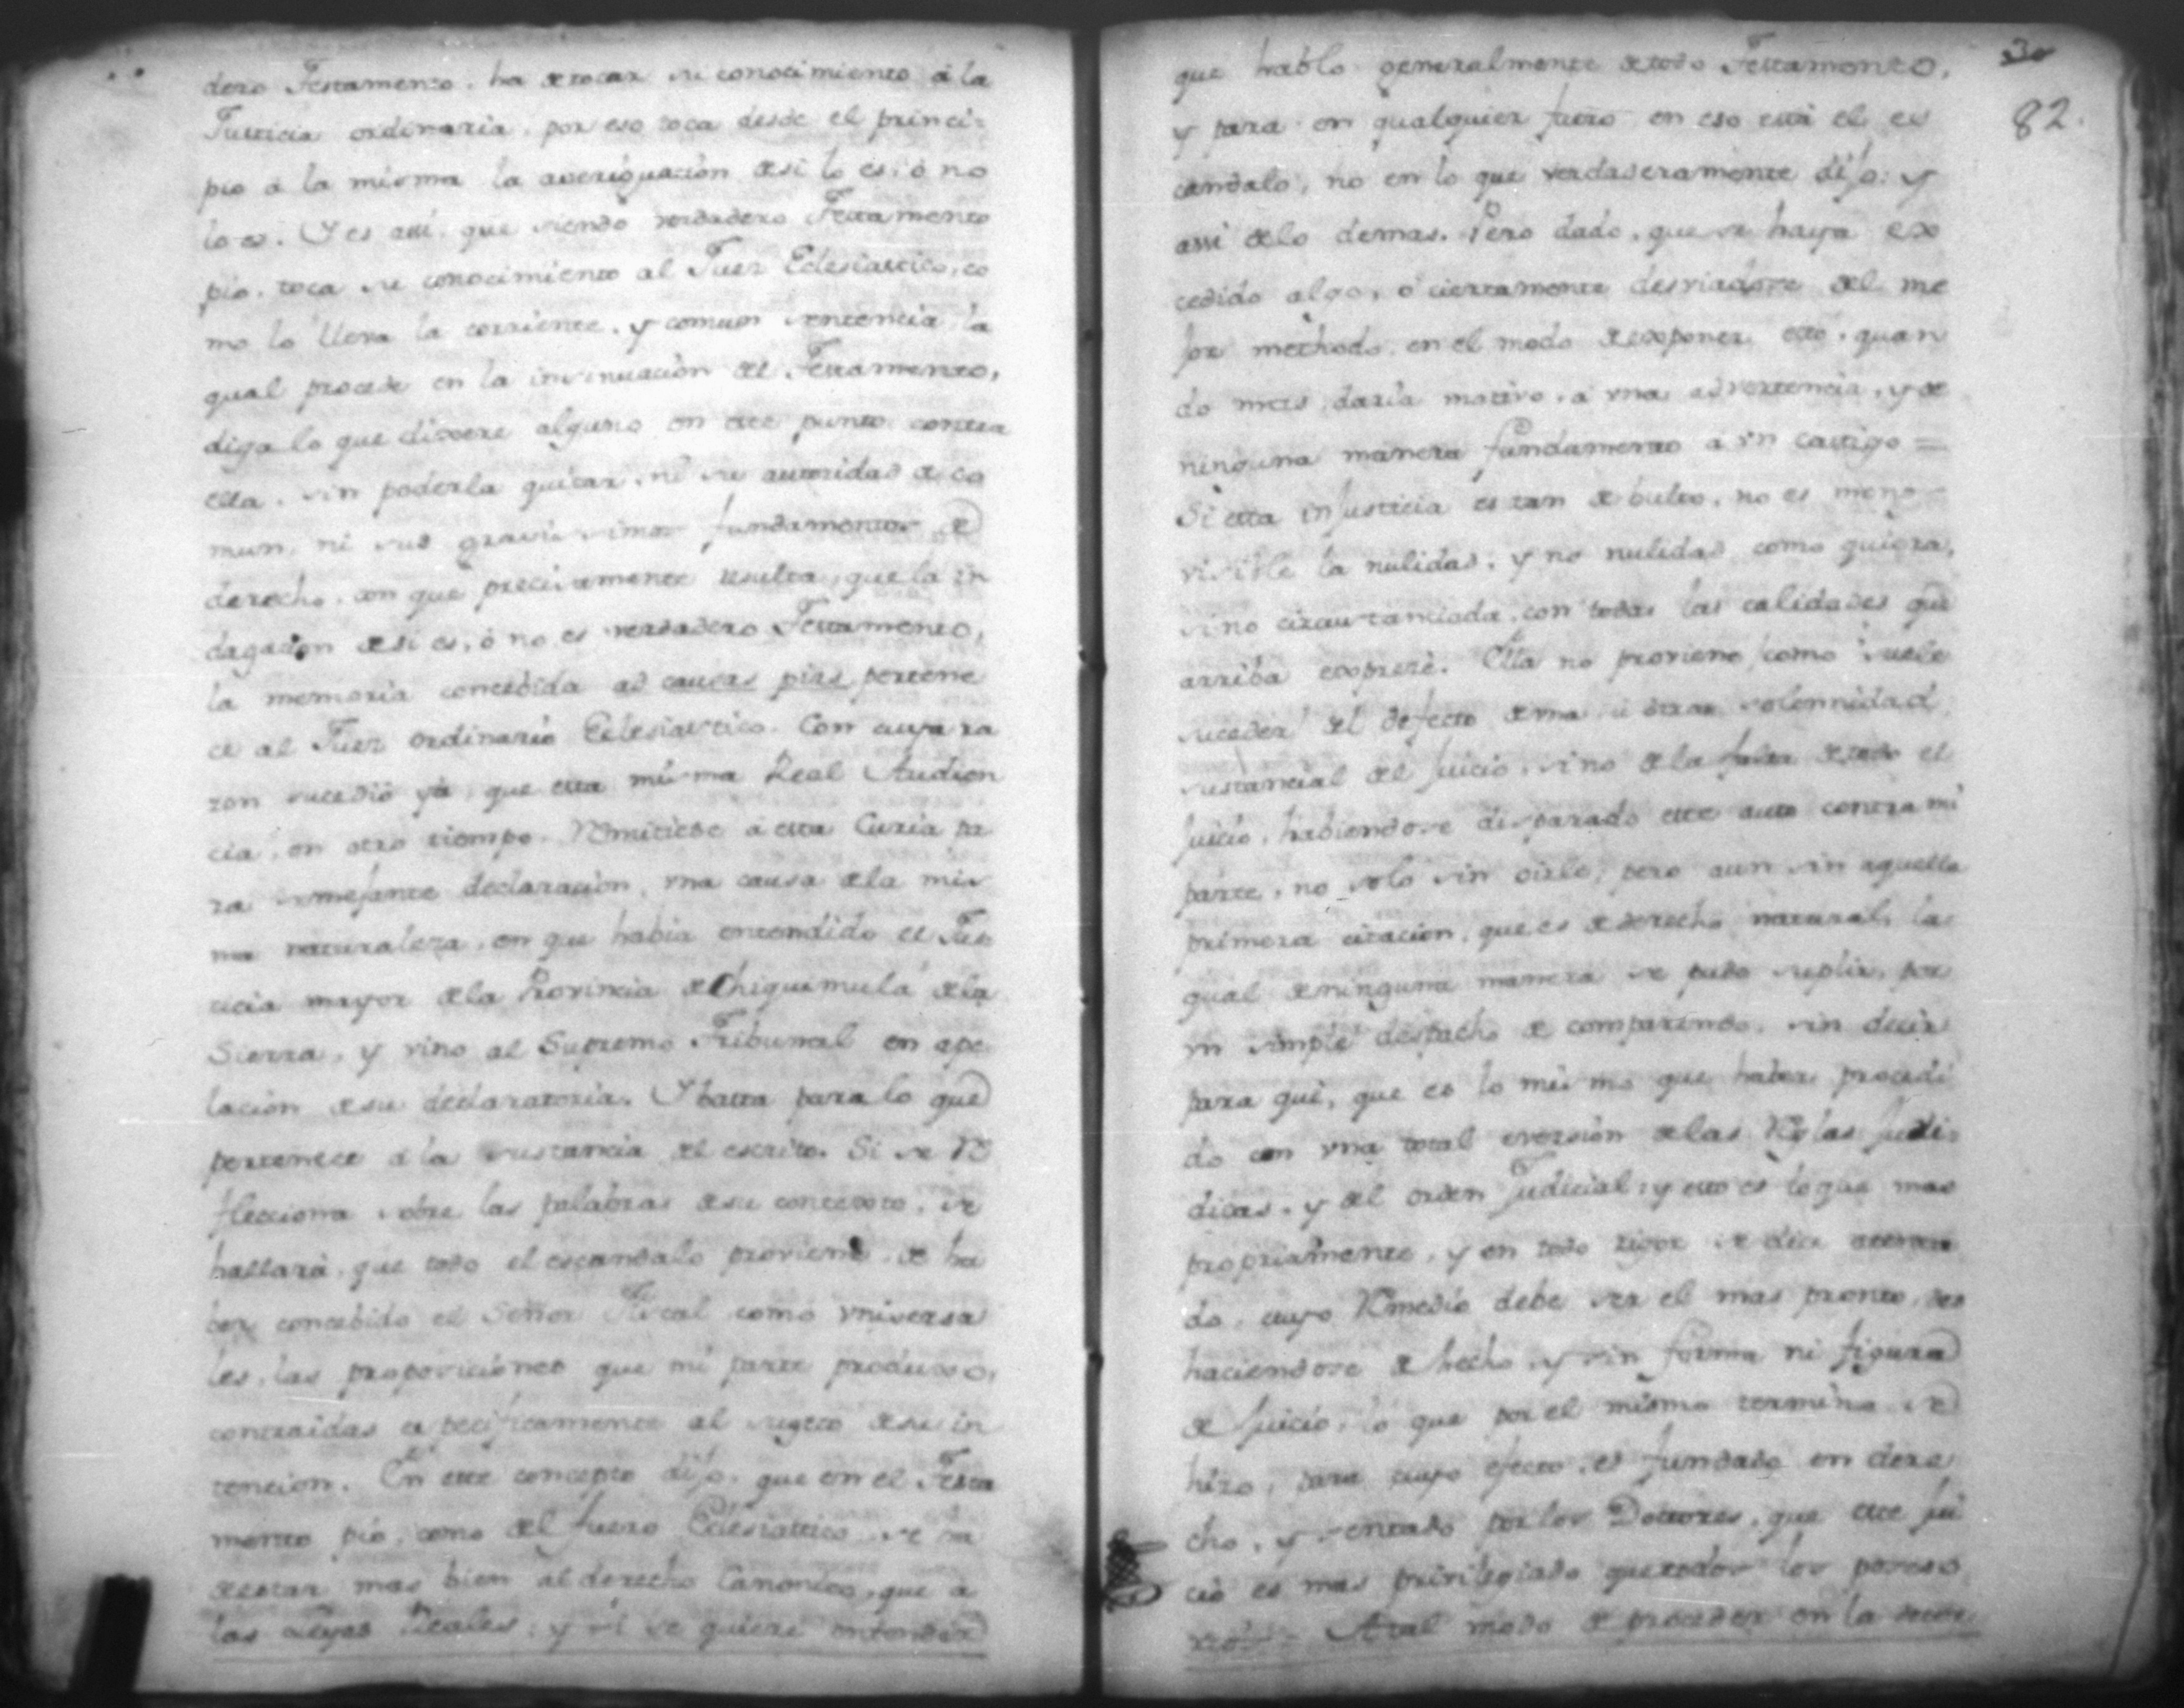 dero Testamento, ha de tocar su conocimiento á la
Justicia ordinaria, por eso toca desde el princi=
pio á la misma la averiguacion de si lo es, ó no
lo es. Y es assi, que siendo verdadero Testamento
pio, toca su conocimiento al Juez Eclesiastico, co
mo lo lleva la corriente, y comun sentencia, la
qual procede en la insinuacion del Testamento,
diga lo que dixere alguno en este punto contra
ella, sin poderla quitar, ni su autoridad de co
mun, ni sus gravissimos fundamentos de
derecho, con que precisamente resulta, que la in
dagacion de si es, ó no es verdadero Testamento,
la memoria concebida ad causas pias pertene
ce al Juez ordinario Eclesiastico. Con cuya ra
zon sucedió yá, que esta misma Real Audien
cia, en otro tiempo, Remitiese á esta Curia pa
ra semejante declaracion, una causa de la mis
ma naturaleza, en que habia entendido el Jus
ticia mayor de la Provincia de Chiquimula de la
Sierra, y vino al Supremo Tribunal en ape
lacion de su declaratoria. Y basta para lo que
pertenece á la sustancia del escrito. Si se Re
flecciona sobre las palabras de su contexto, se
hallará, que todo el escandalo proviene, de ha
ber concebido el Señor Fiscal como vniversa
les, las proposiciones que mi parte produxo,
contraidas especificamente al sugeto de su in
tencion. En este concepto dijo, que en el Testa
mento pio, como del fuero Eclesiastico se ha
de estar mas bien al derecho Canonico, que á
las Leyes Reales; y si se quiere entender
30
82.
que hablo generalmente de todo Testamento,
y para en qualquier fuero en eso está el es
candalo, no en lo que verdaderamente dijo: y
assi de lo demas. Pero dado, que se haya ex
cedido algo, ó ciertamente desviadose del me
jor methodo, en el modo de exponer esto, quan
do mas, daria motivo, á vna advertencia, y de
ninguna manera fundamento á vn castigo =
Si esta injusticia es tan de bulto, no es meno
visible la nulidad, y no nulidad como quiera,
sino circunstanciada, con todas las calidades que
arriba expresé. Ella no proviene, como suele
suceder del defecto de vna, ú otra solemnidad
sustancial del juicio, sino de la falta de todo el
juicio, habiendose disparado este auto contra mi
parte, no solo sin oirle, pero aun sin aquella
primera citacion, que es de derecho natural, la
qual de ninguna manera se pudo suplir, por
vn simple despacho de comparendo, sin decir
para qué, que es lo mismo que haber procedi
do con vna total eversion de las Reglas Juri=
dicas, y del orden Judicial; y esto es lo que mas
propriamente, y en todo rigor se dice
do, cuyo Remedio debe ser el mas pronto, des
haciendose de hecho, y sin forma ni figura
de juicio, lo que por el mismo termino se
hizo, para cuyo efecto, es fundado en dere
cho, y sentado por los Doctores, que este jui
cio es mas privilegiado que todos los
A tal modo de proceder en la